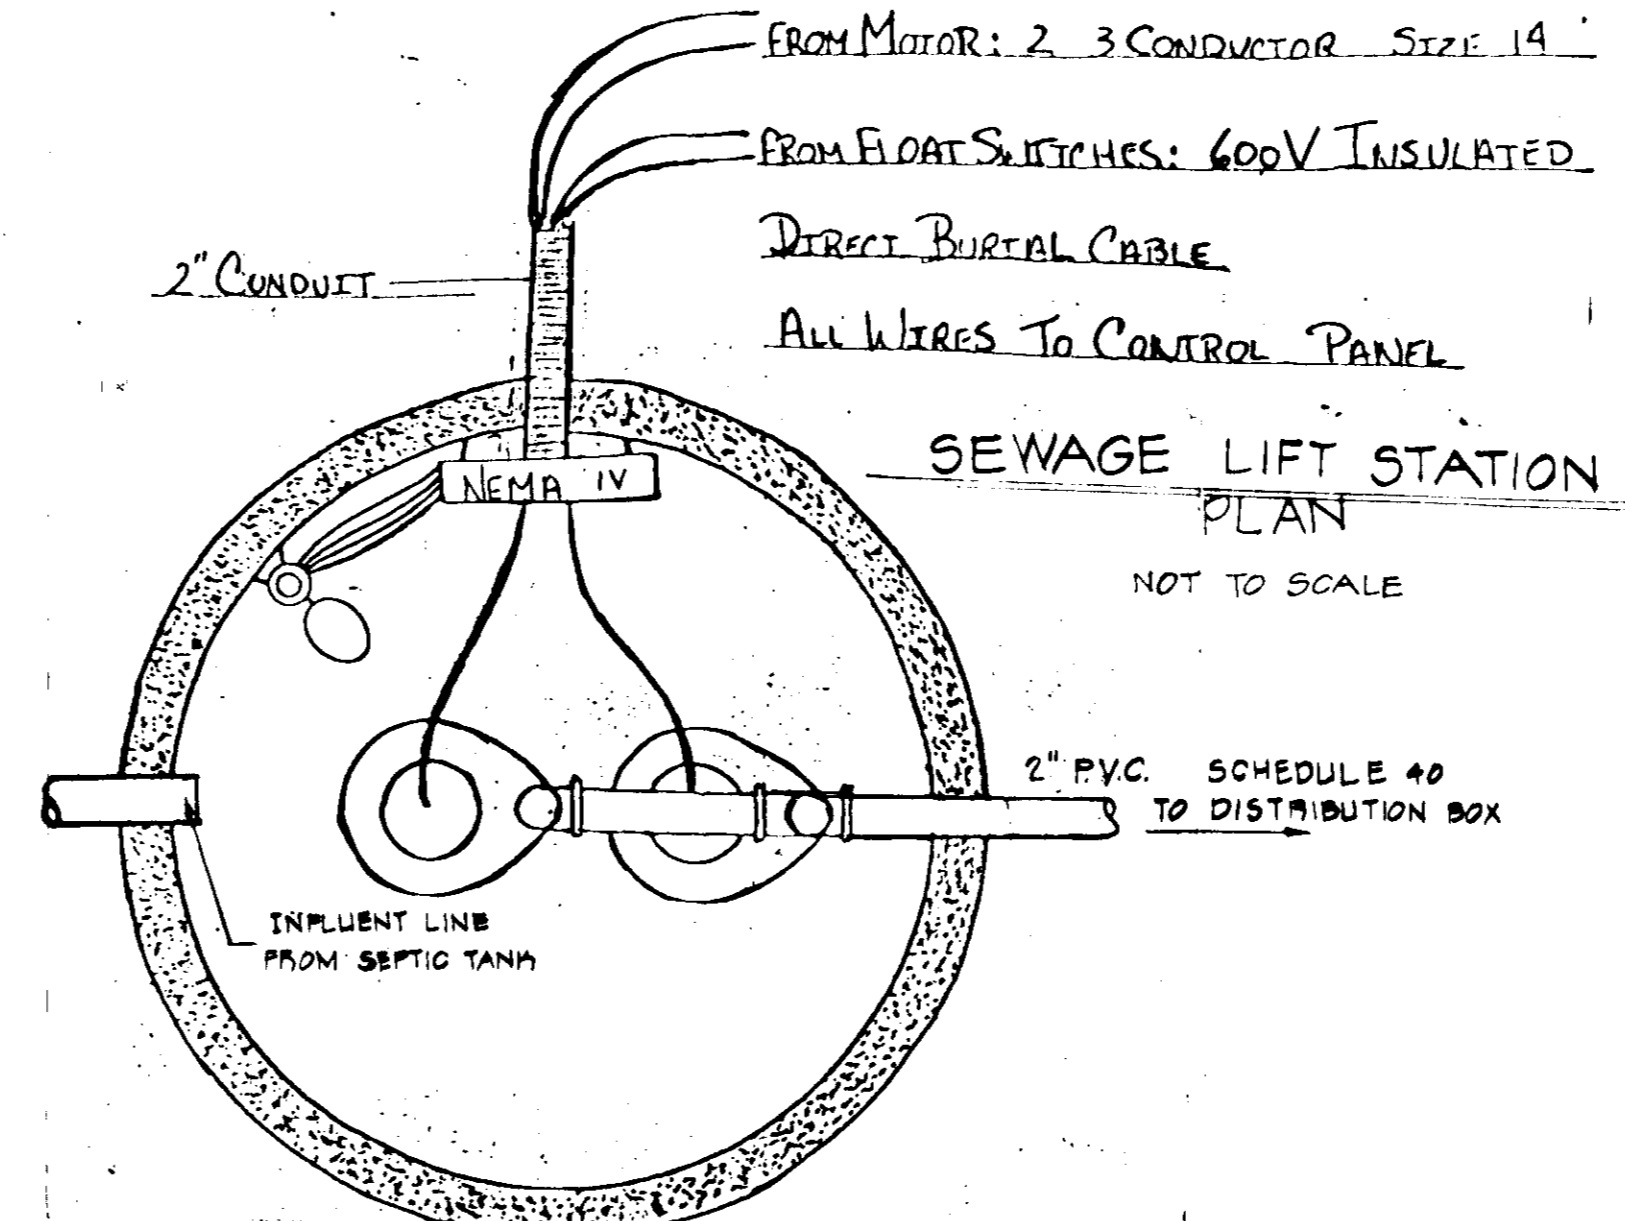 FROM MOTOR: 2 3 CONDUCTOR SIZE 14
FROM FLOAT SWITCHES: 600V INSULATED
DIRECT BURIAL CABLE
2" CONDUIT
ALL WIRES TO CONTROL PANEL
SEWAGE LIFT STATION
PLAN
NOT TO SCALE
NEMA IV
2" P.V.C. SCHEDULE 40
TO DISTRIBUTION BOX
INFLUENT LINE
FROM SEPTIC TANK